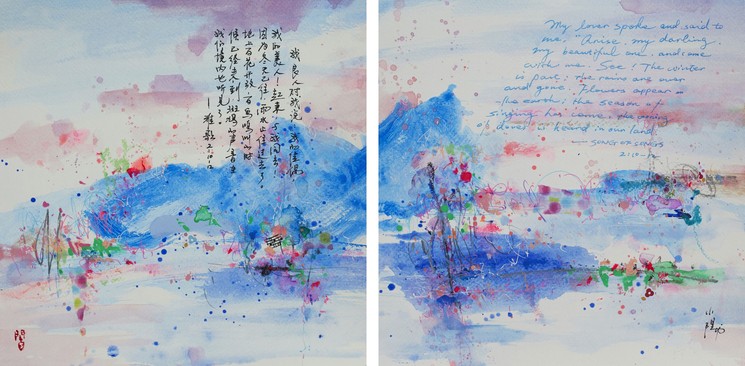 我良人对我说:我的佳偶
我的美人!起来,与我同去!
因为冬天已往,雨水止住过去了。
地上百花开放,百鸟鸣叫的时
候已经来到,斑鸠的声音在
我们境内也听见了。
—雅歌 2:10-12
My lover spoke and said to
me, "Arise, my darling,
my beautiful one, and come
with me. See! The winter
is past; the rains are over
and gone. Flowers appear on
the earth; the season of
singing has come, the cooing
of doves is heard in our land.
— SONG OF SONGS
2:10-12